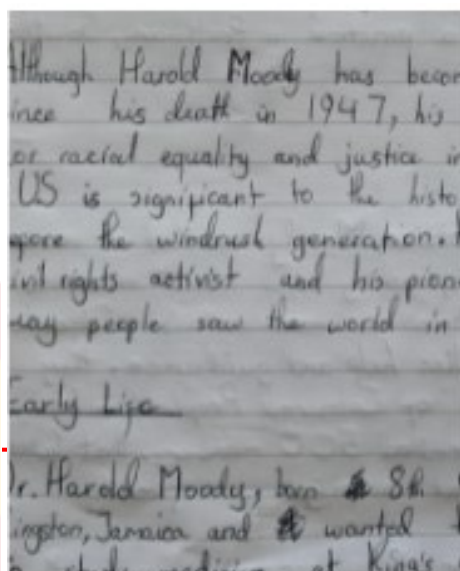 lthough Harold Moody has becom
ince his death in 1947, his
or racial equality and justice in
US is significant to the histo
efore the windrush generation.
ivil rights activist and his pione
way people saw the world in
Early Life
Dr. Harold Moody, born 8th
ingston, Jamaica and wanted t
study medicine at King's